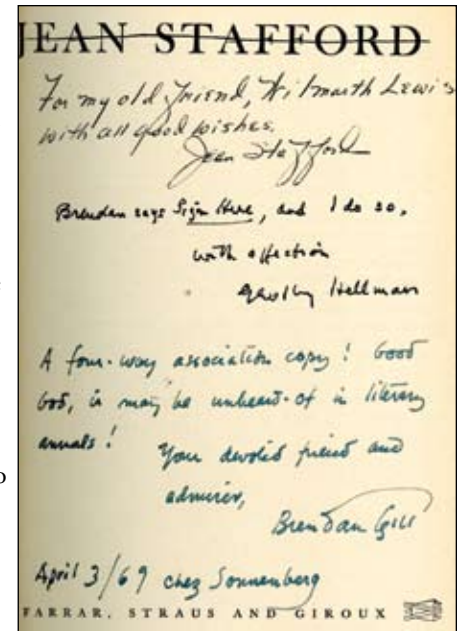 JEAN STAFFORD
For my old friend, Wilmarth Lewis
with all good wishes.
Jean Stafford
Brendan says Sign Here, and I do so,
with affection
Geoffrey Hellman
A four-way association copy! Good
God, it may be unheard-of in literary
annals!
Your devoted friend and
admirer,
Brendan Gill
April 3/69 chez Sonnenberg
FARRAR, STRAUS AND GIROUX